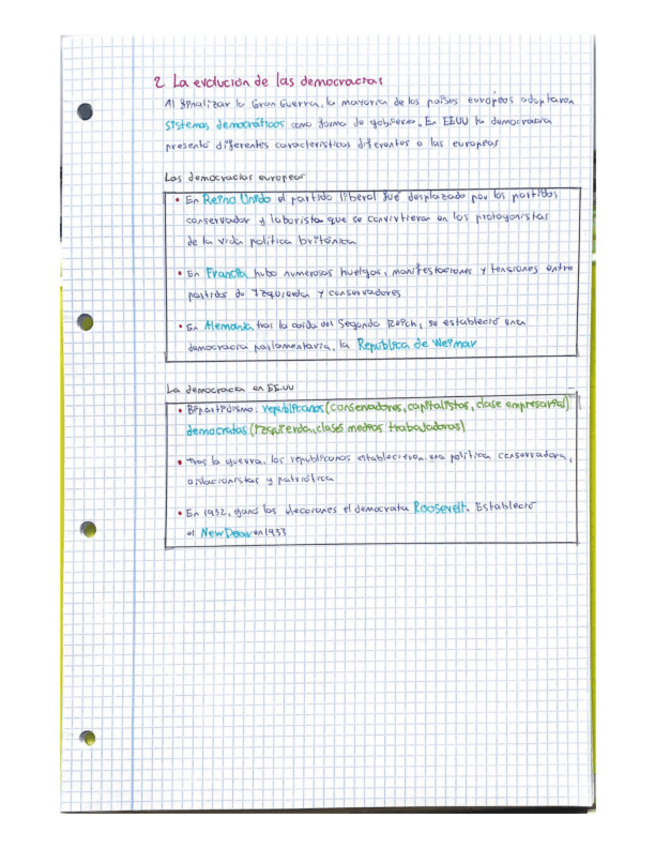 2. La evolución de las democracias
Al finalizar la Gran Guerra, la mayoría de los países europeos adoptaron
sistemas democráticos como forma de gobierno. En EEUU la democracia
presentó diferentes características diferentes a las europeas
Las democracias europeas
• En Reino Unido el partido liberal fue desplazado por los partidos
conservador y laborista que se convirtieron en los protagonistas
de la vida política británica
• En Francia hubo numerosas huelgas, manifestaciones y tensiones entre
partidos de izquierda y conservadores
• En Alemania, tras la caída del Segundo Reich, se estableció una
democracia parlamentaria, la República de Weimar
La democracia en EEUU
• Bipartidismo: republicanos (conservadores, capitalistas, clase empresarial)
demócratas (izquierda, clases medias trabajadoras)
• Tras la guerra, los republicanos establecieron una política conservadora,
aislacionistas y patriótica
• En 1932, ganó las elecciones el demócrata Roosevelt. Estableció
el New Deal en 1933